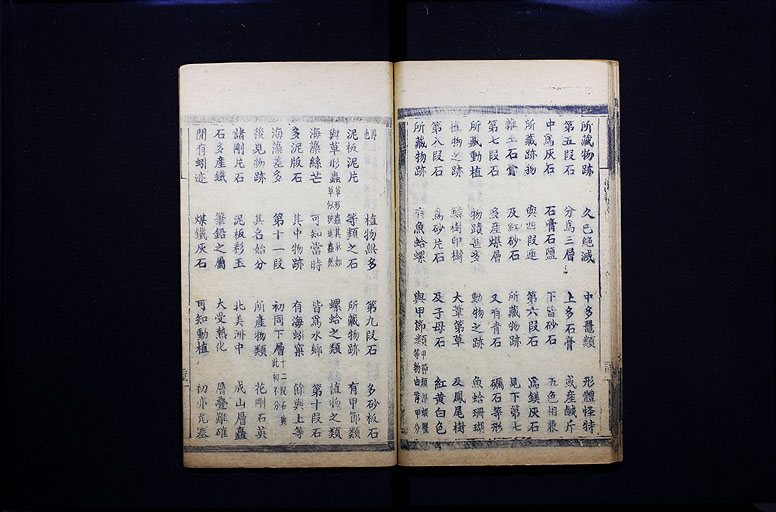 所藏物跡 久已絶滅 中多鼉類 形體怪特
第五段石 分爲三層 上多石膏 或産鹹斤
中爲灰石 石膏石鹽 下皆砂石 五色相兼
所藏跡物 與四段連 第六段石 爲鎂灰石
雜土石膏 及紅砂石 所藏物跡 見下第七
第七段石 多産煤層 又有青石 礪石等形
所藏動植 物蹟甚亥 動物之跡 魚蛤珊瑚
植物之跡 鱗樹印樹 大葦第草 及鳳尾樹
第八段石 爲砂片石 及子母石 紅黄白色
所藏物跡 有魚蛤螺 與甲節類
植物無多 第九段石 多砂板石
泥板泥片 等類之石 所藏物跡 有甲節類
與草形蟲 螺蛤之類 植物之類
海藻絲芒 可知當時 皆爲水鄉 第十段石
多泥版石 其中物跡 有海蚓窠 餘與上等
海藻差多 第十一段 初同下層
後見物跡 其名始分 所產物類 花剛石英
諸剛片石 泥板彩玉 北美洲中 成山層矗
石多產鐵 筆鉛之屬 大受熱化 層疊難確
間有蚓迹 煤鐵灰石 可知動植 初亦充塞